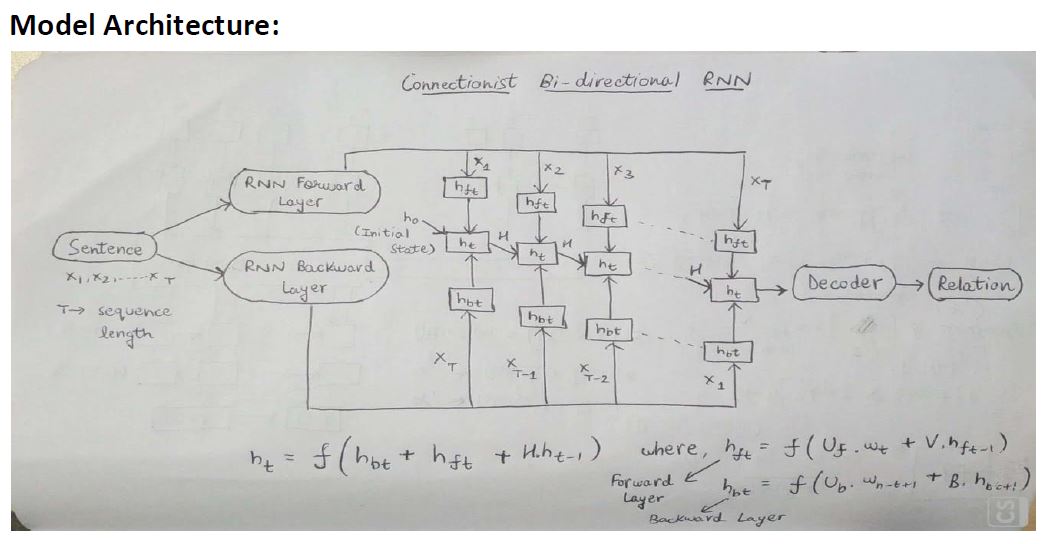 Model Architecture:
Connectionist Bi-directional RNN
RNN Forward
Layer
Sentence
x1, x2, ----- x T
T→ sequence
length
RNN Backward
Layer
h0
(Initial
State)
x1
x2
x3
xT
hft
hft
hft
hft
ht
H
ht
H
ht
H
ht
hbt
hbt
hbt
hbt
xT
xT-1
xT-2
x1
Decoder
Relation
ht = f(hbt + hft + H.ht-1) where, hft = f(Uf.wt + V.hft-1)
Forward
Layer
hbt = f(Ub.wn-t+1 + B.
Backward Layer
CS